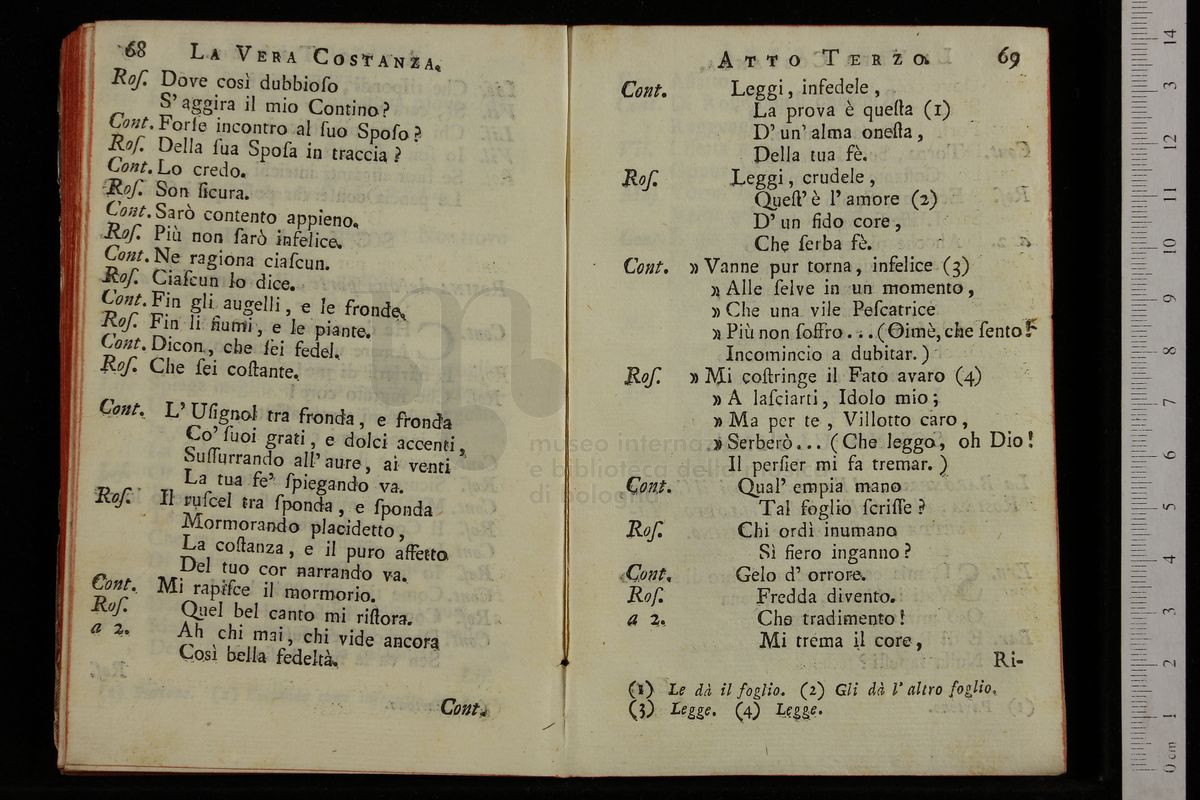 68 LA VERA COSTANZA.
Roſ. Dove così dubbioſo
S' aggira il mio Contino?
Cont. Forſe incontro al ſuo Spoſo?
Roſ. Della ſua Spoſa in traccia?
Cont. Lo credo.
Roſ. Son ſicura.
Cont. Sarò contento appieno.
Roſ. Più non ſarò infelice.
Cont. Ne ragiona ciaſcun.
Roſ. Ciaſcun lo dice.
Cont. Fin gli augelli, e le fronde.
Roſ. Fin li fiumi, e le piante.
Cont. Dicon, che ſei fedel.
Roſ. Che ſei coſtante.
Cont. L' Uſignol tra fronda, e fronda
Co' ſuoi grati, e dolci accenti,
Suſſurrando all' aure, ai venti
La tua fe' ſpiegando va.
Roſ. Il ruſcel tra ſponda, e ſponda
Mormorando placidetto,
La coſtanza, e il puro affetto
Del tuo cor narrando va.
Cont. Mi rapiſce il mormorio.
Roſ. Quel bel canto mi riſtora.
a 2. Ah chi mai, chi vide ancora
Così bella fedeltà.
Cont.
ATTO TERZO. 69
Cont. Leggi, infedele,
La prova è queſta (1)
D' un' alma oneſta,
Della tua fè.
Roſ. Leggi, crudele,
Queſt' è l' amore (2)
D' un fido core,
Che ſerba fè.
Cont. » Vanne pur torna, infelice (3)
» Alle ſelve in un momento,
» Che una vile Peſcatrice
» Più non ſoffro... (Oimè, che ſento?
Incomincio a dubitar.)
Roſ. » Mi coſtringe il Fato avaro (4)
» A laſciarti, Idolo mio;
» Ma per te, Villotto caro,
» Serberò... (Che leggo, oh Dio!
Il penſier mi fa tremar.)
Cont. Qual' empia mano
Tal foglio ſcriſſe?
Roſ. Chi ordì inumano
Sì fiero inganno?
Cont. Gelo d' orrore.
Roſ. Fredda divento.
a 2. Che tradimento!
Mi trema il core,
Ri-
(1) Le dà il foglio. (2) Gli dà l' altro foglio.
(3) Legge. (4) Legge.